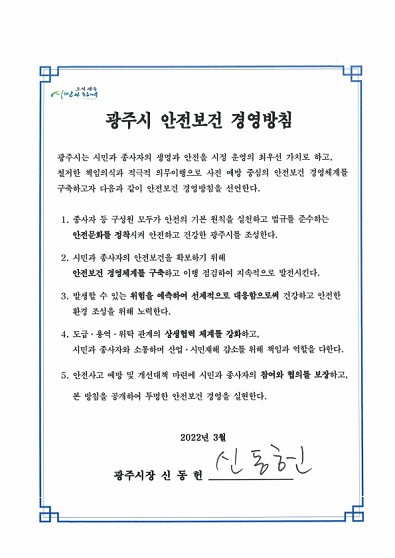 광주시 안전보건 경영방침
광주시는 시민과 종사자의 생명과 안전을 시정 운영의 최우선 가치로 하고,
철저한 책임의식과 적극적 의무이행으로 사전 예방 중심의 안전보건 경영체계를
구축하고자 다음과 같이 안전보건 경영방침을 선언한다.
1. 종사자 등 구성원 모두가 안전의 기본 원칙을 실천하고 법규를 준수하는
안전문화를 정착시켜 안전하고 건강한 광주시를 조성한다.
2. 시민과 종사자의 안전보건을 확보하기 위해
안전보건 경영체계를 구축하고 이행 점검하여 지속적으로 발전시킨다.
3. 발생할 수 있는 위험을 예측하여 선제적으로 대응함으로써 건강하고 안전한
환경 조성을 위해 노력한다.
4. 도급·용역·위탁 관계의 상생협력 체계를 강화하고,
시민과 종사자와 소통하며 산업·시민재해 감소를 위해 책임과 역할을 다한다.
5. 안전사고 예방 및 개선대책 마련에 시민과 종사자의 참여와 협의를 보장하고,
본 방침을 공개하여 투명한 안전보건 경영을 실현한다.
2022년 3월
광주시장 신 동 헌 신동헌